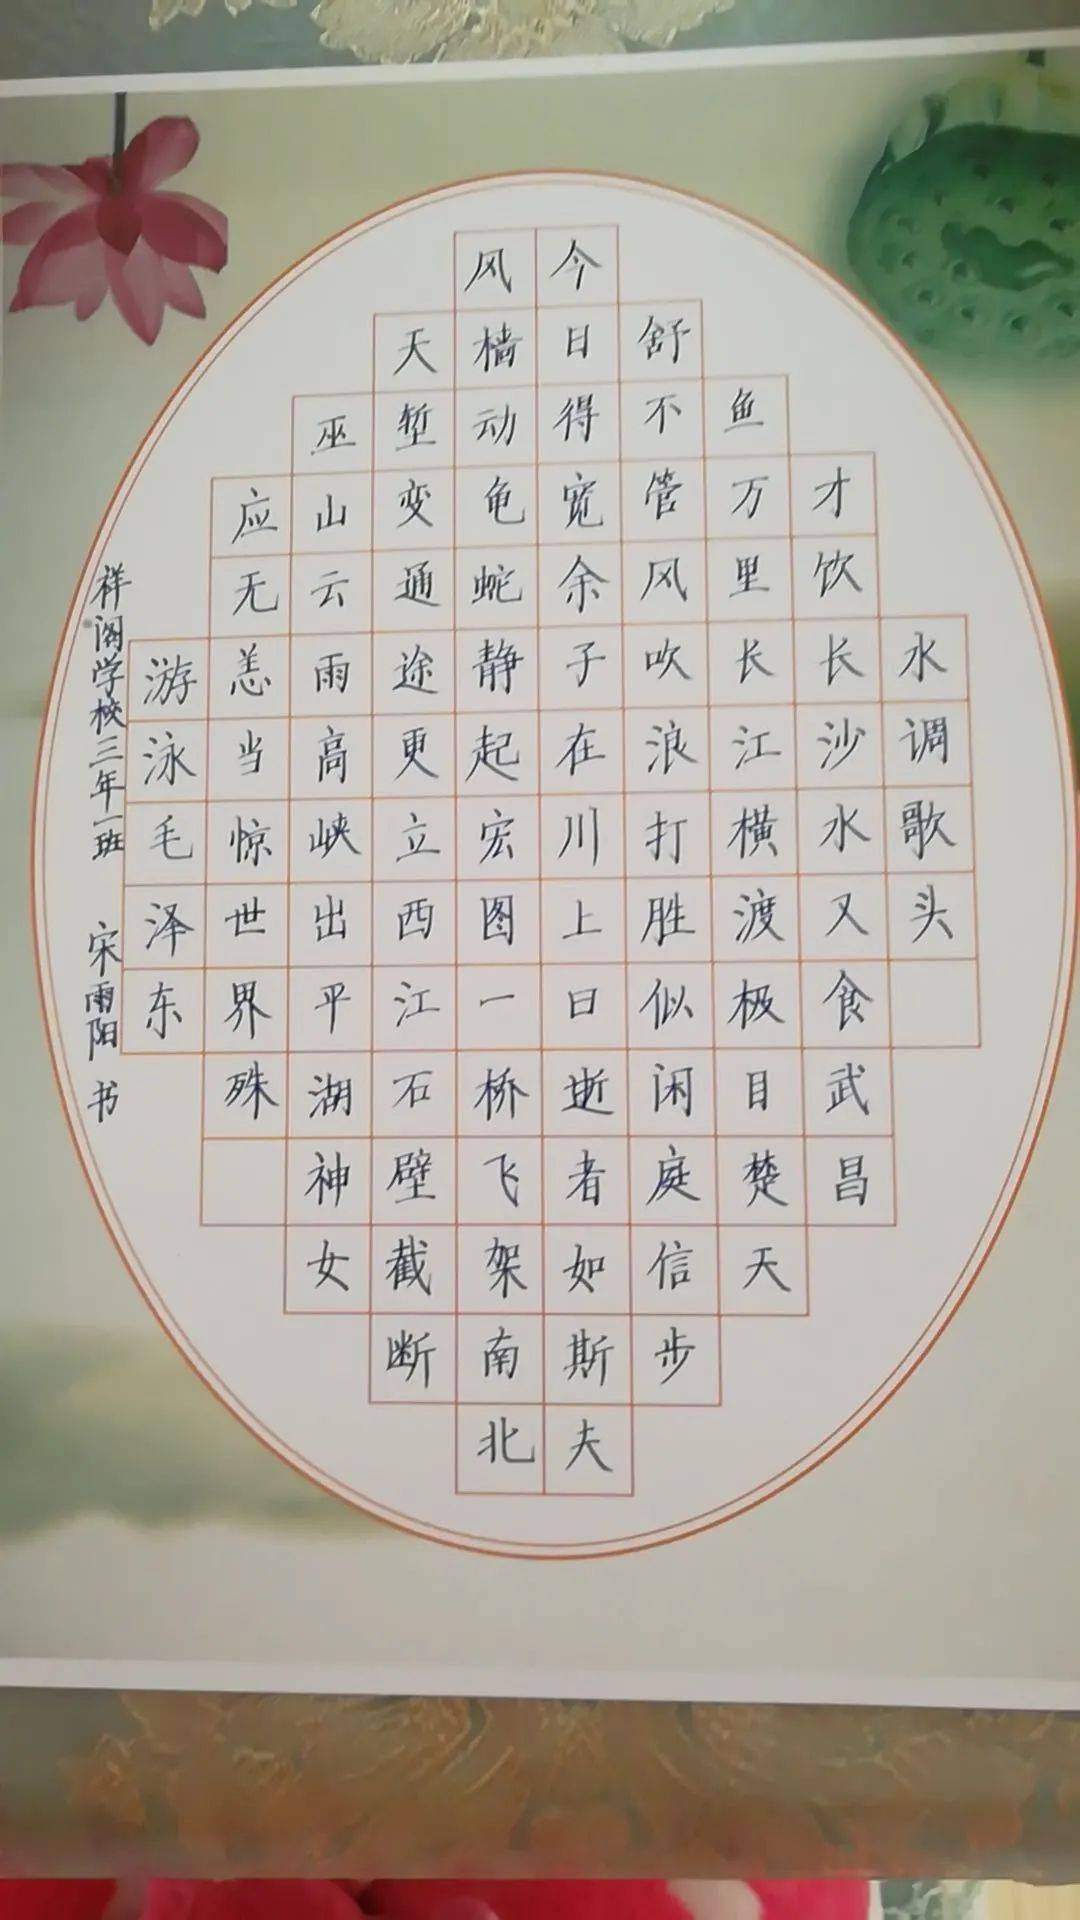 水调歌头
才饮长沙水又食武昌
鱼万里长江横渡极目楚天
舒不管风吹浪打胜似闲庭信步
今日得宽余子在川上曰逝者如斯夫
风樯动龟蛇静起宏图一桥飞架南北
天堑变通途更立西江石壁截断
巫山云雨高峡出平湖神女
应无恙当惊世界殊
游泳毛泽东
祥阁学校三年一班 宋雨阳 书